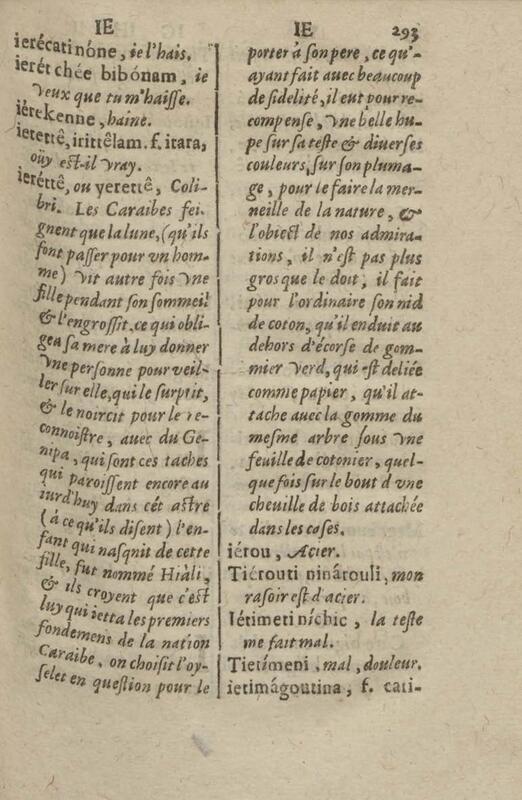 IE
IE 293
ierécatinône, ie l'hais.
ierét chée bibónam, ie
veux que tu m'haisse.
iérekenne, haine.
ietettê, irittêlam. f. itara,
oüy est-il vray.
ieréttê, ou yerettê, Coli-
bri. Les Caraibes fei-
gnent que la lune, (qu'ils
font passer pour vn hom-
me) vit autre fois vne
fille pendant son sommeil
& l'engrossit, ce qui obli-
gea sa mere à luy donner
vne personne pour veil-
ler sur elle, qui le surprit,
& le noircit pour le re-
connoistre, auec du Ge-
nipa, qui sont ces taches
qui paroissent encore au
iurd'huy dans cét astre
(à ce qu'ils disent) l'en-
fant qui nasquit de cette
fille, fut nommé Hiáli,
& ils croyent que c'est
luy qui ietta les premiers
fondemens de la nation
Caraibe, on choisit l'oy-
selet en question pour le
porter à son pere, ce qu'-
ayant fait auec beaucoup
de fidelité, il eut pour re-
compense, vne belle hu-
pe sur sa teste & diuerses
couleurs, sur son pluma-
ge, pour le faire la mer-
neille de la nature, &
l'obiect de nos admira-
tions, il n'est pas plus
gros que le doit, il fait
pour l'ordinaire son nid
de coton, qu'il enduit au
dehors d'écorse de gom-
mier verd, qui est deliée
comme papier, qu'il at-
tache auec la gomme du
mesme arbre sous vne
feuille de cotonier, quel-
que fois sur le bout d'vne
cheuille de bois attachée
dans les cases.
iérou, Acier.
Tiérouti ninárouli, mon
rasoir est d'acier.
Iétimeti níchic, la teste
me fait mal.
Tietímeni, mal, douleur.
ietimágoutina, f. cati-